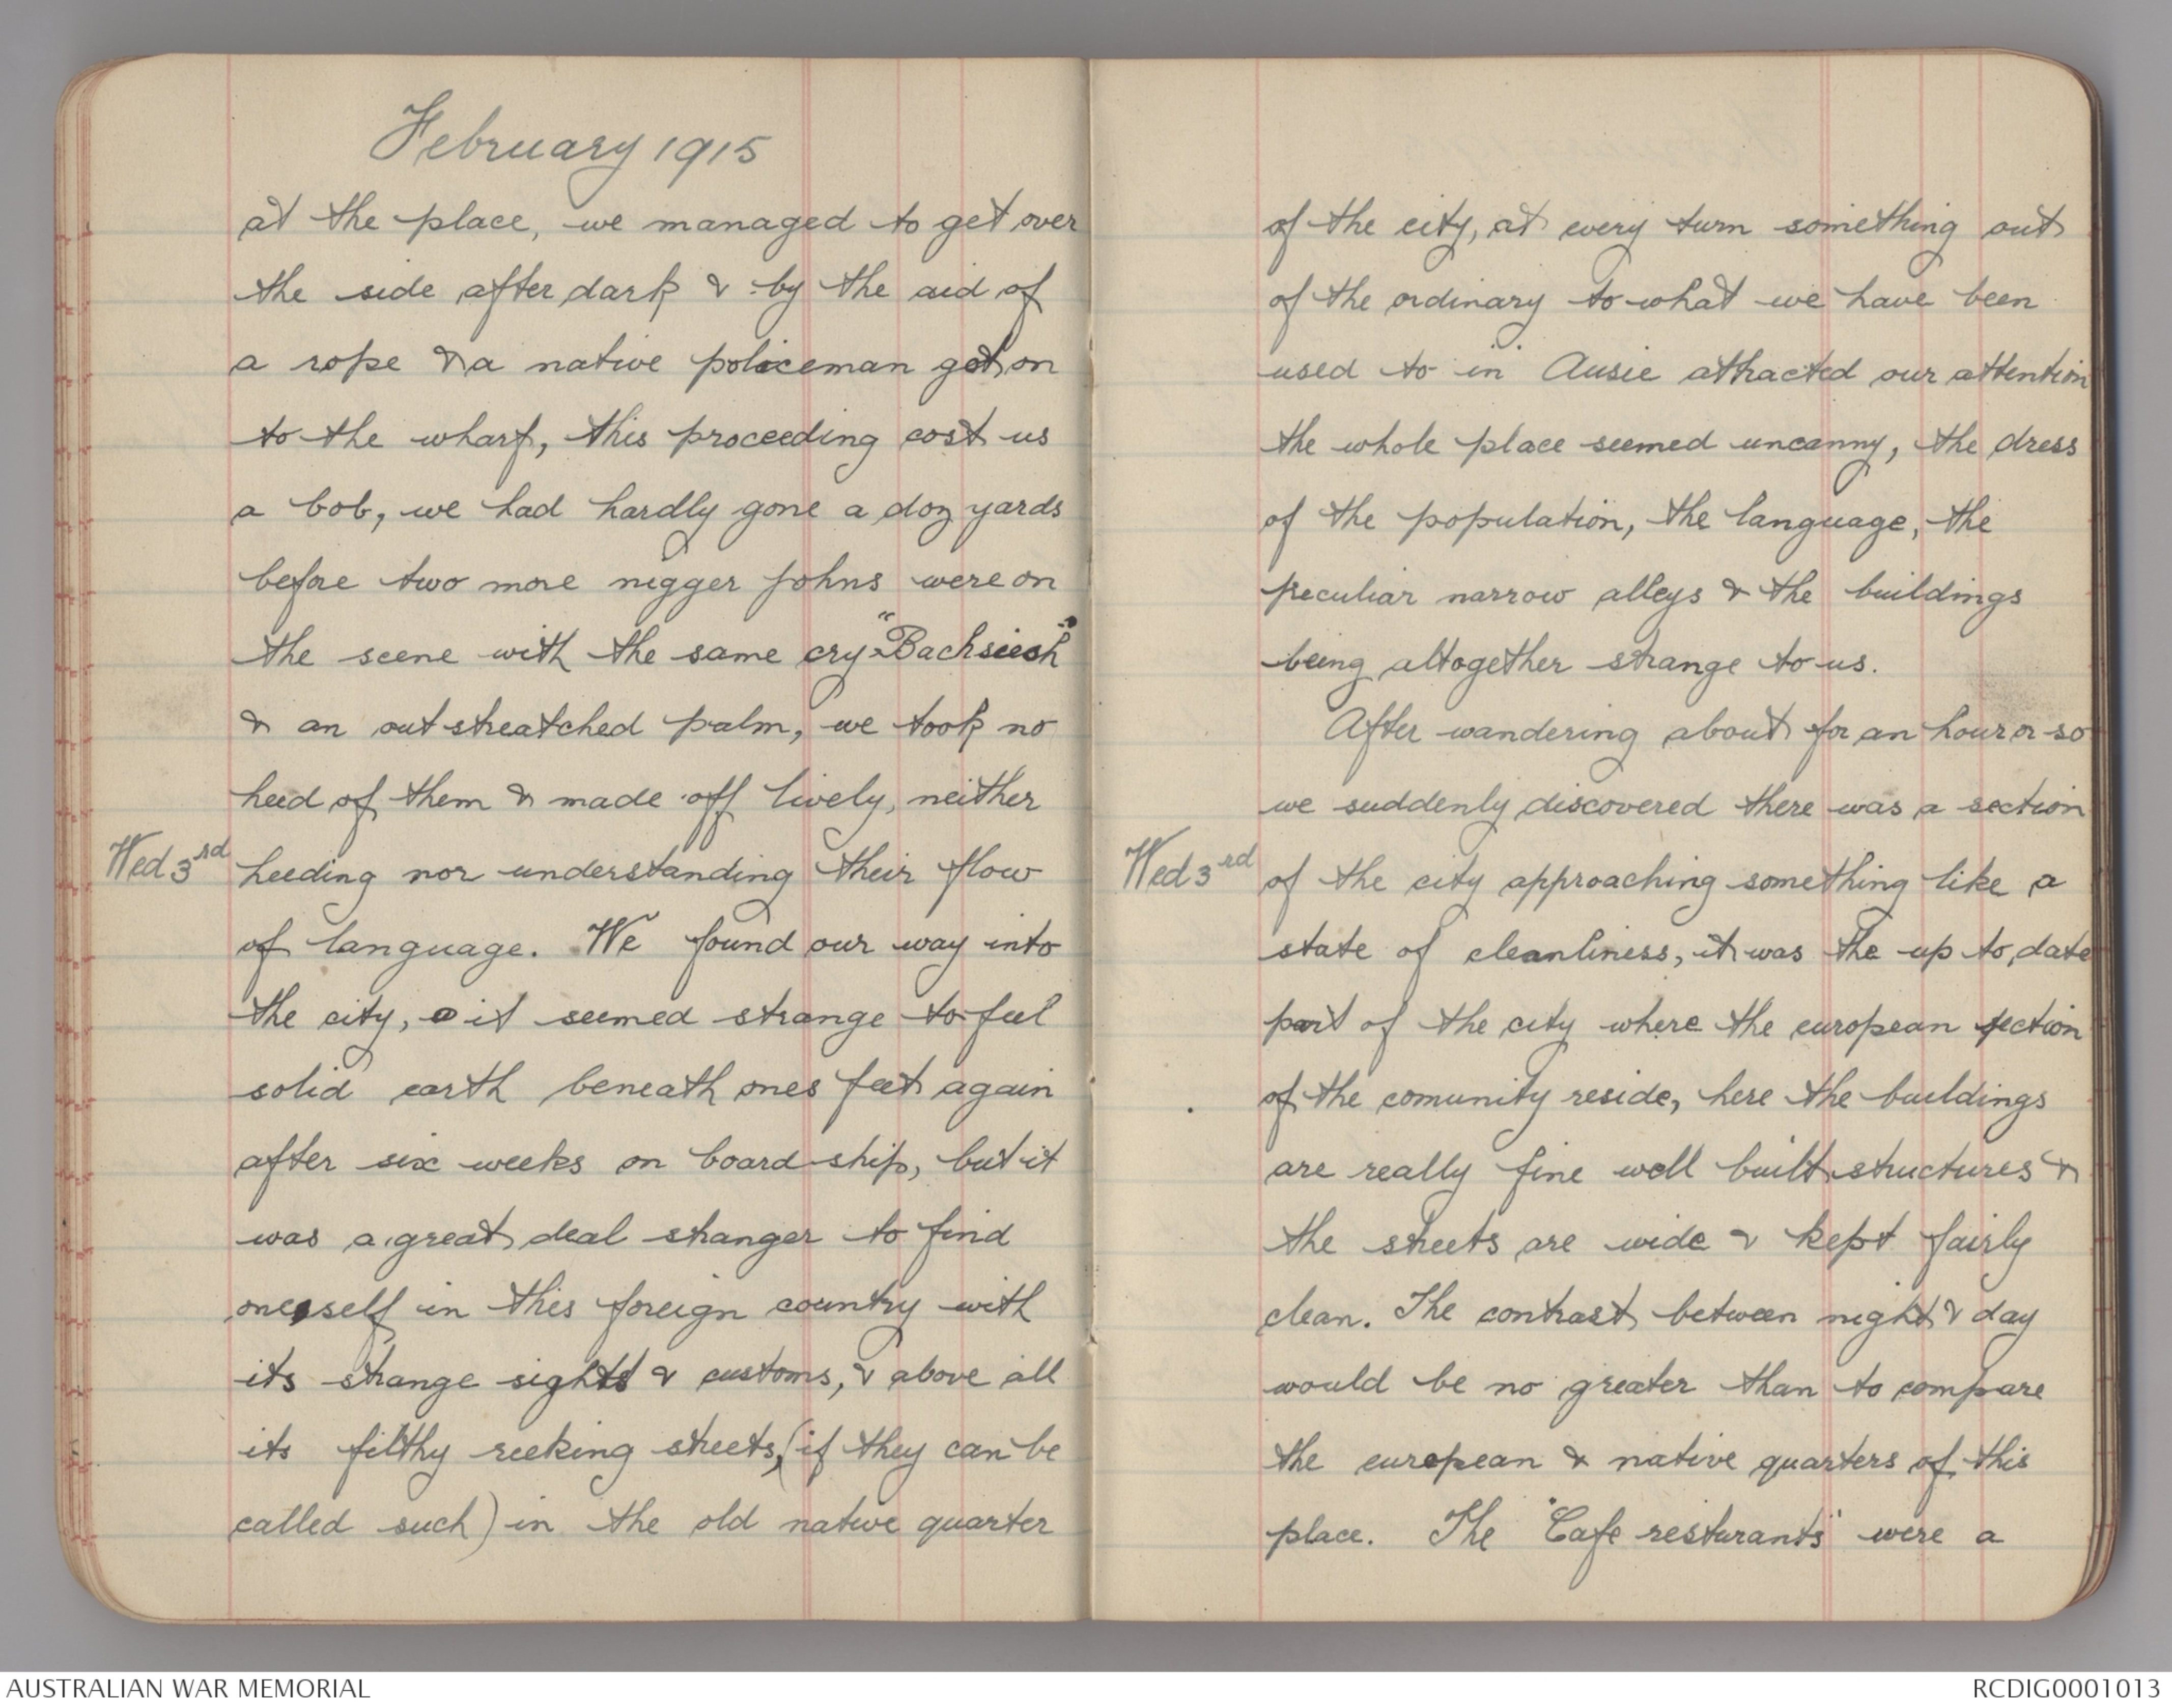 February 1915
at the place, we managed to get over
the side after dark & by the aid of
a rope & a native policeman got on
to the wharf, this proceeding cost us
a bob, we had hardly gone a doz yards
before two more nigger johns were on
the scene with the same cry "Bachsiesh"
& an outstreatched palm, we took no
heed of them & made off lively, neither
Wed 3rd heeding nor understanding their flow
of language. We found our way into
the city, it seemed strange to feel
solid earth beneath ones feet again
after six weeks on board ship, but it
was a great deal stranger to find
onesself in this foreign country with
its strange sights & customs, & above all
its filthy reeking streets, (if they can be
called such) in the old native quarter
of the city, at every turn something out
of the ordinary to what we have been
used to in Ausie attracted our attention
the whole place seemed uncanny, the dress
of the population, the language, the
peculiar narrow alleys & the buildings
being altogether strange to us.
After wandering about for an hour or so
we suddenly discovered there was a section
Wed 3rd of the city approaching something like a
state of cleanliness, it was the up to date
part of the city where the european section
of the comunity reside, here the buildings
are really fine well built structures &
the streets are wide & kept fairly
clean. The contrast between night & day
would be no greater than to compare
the european & native quarters of this
place. The "Cafe resturants" were a
AUSTRALIAN WAR MEMORIAL
RCDIG0001013